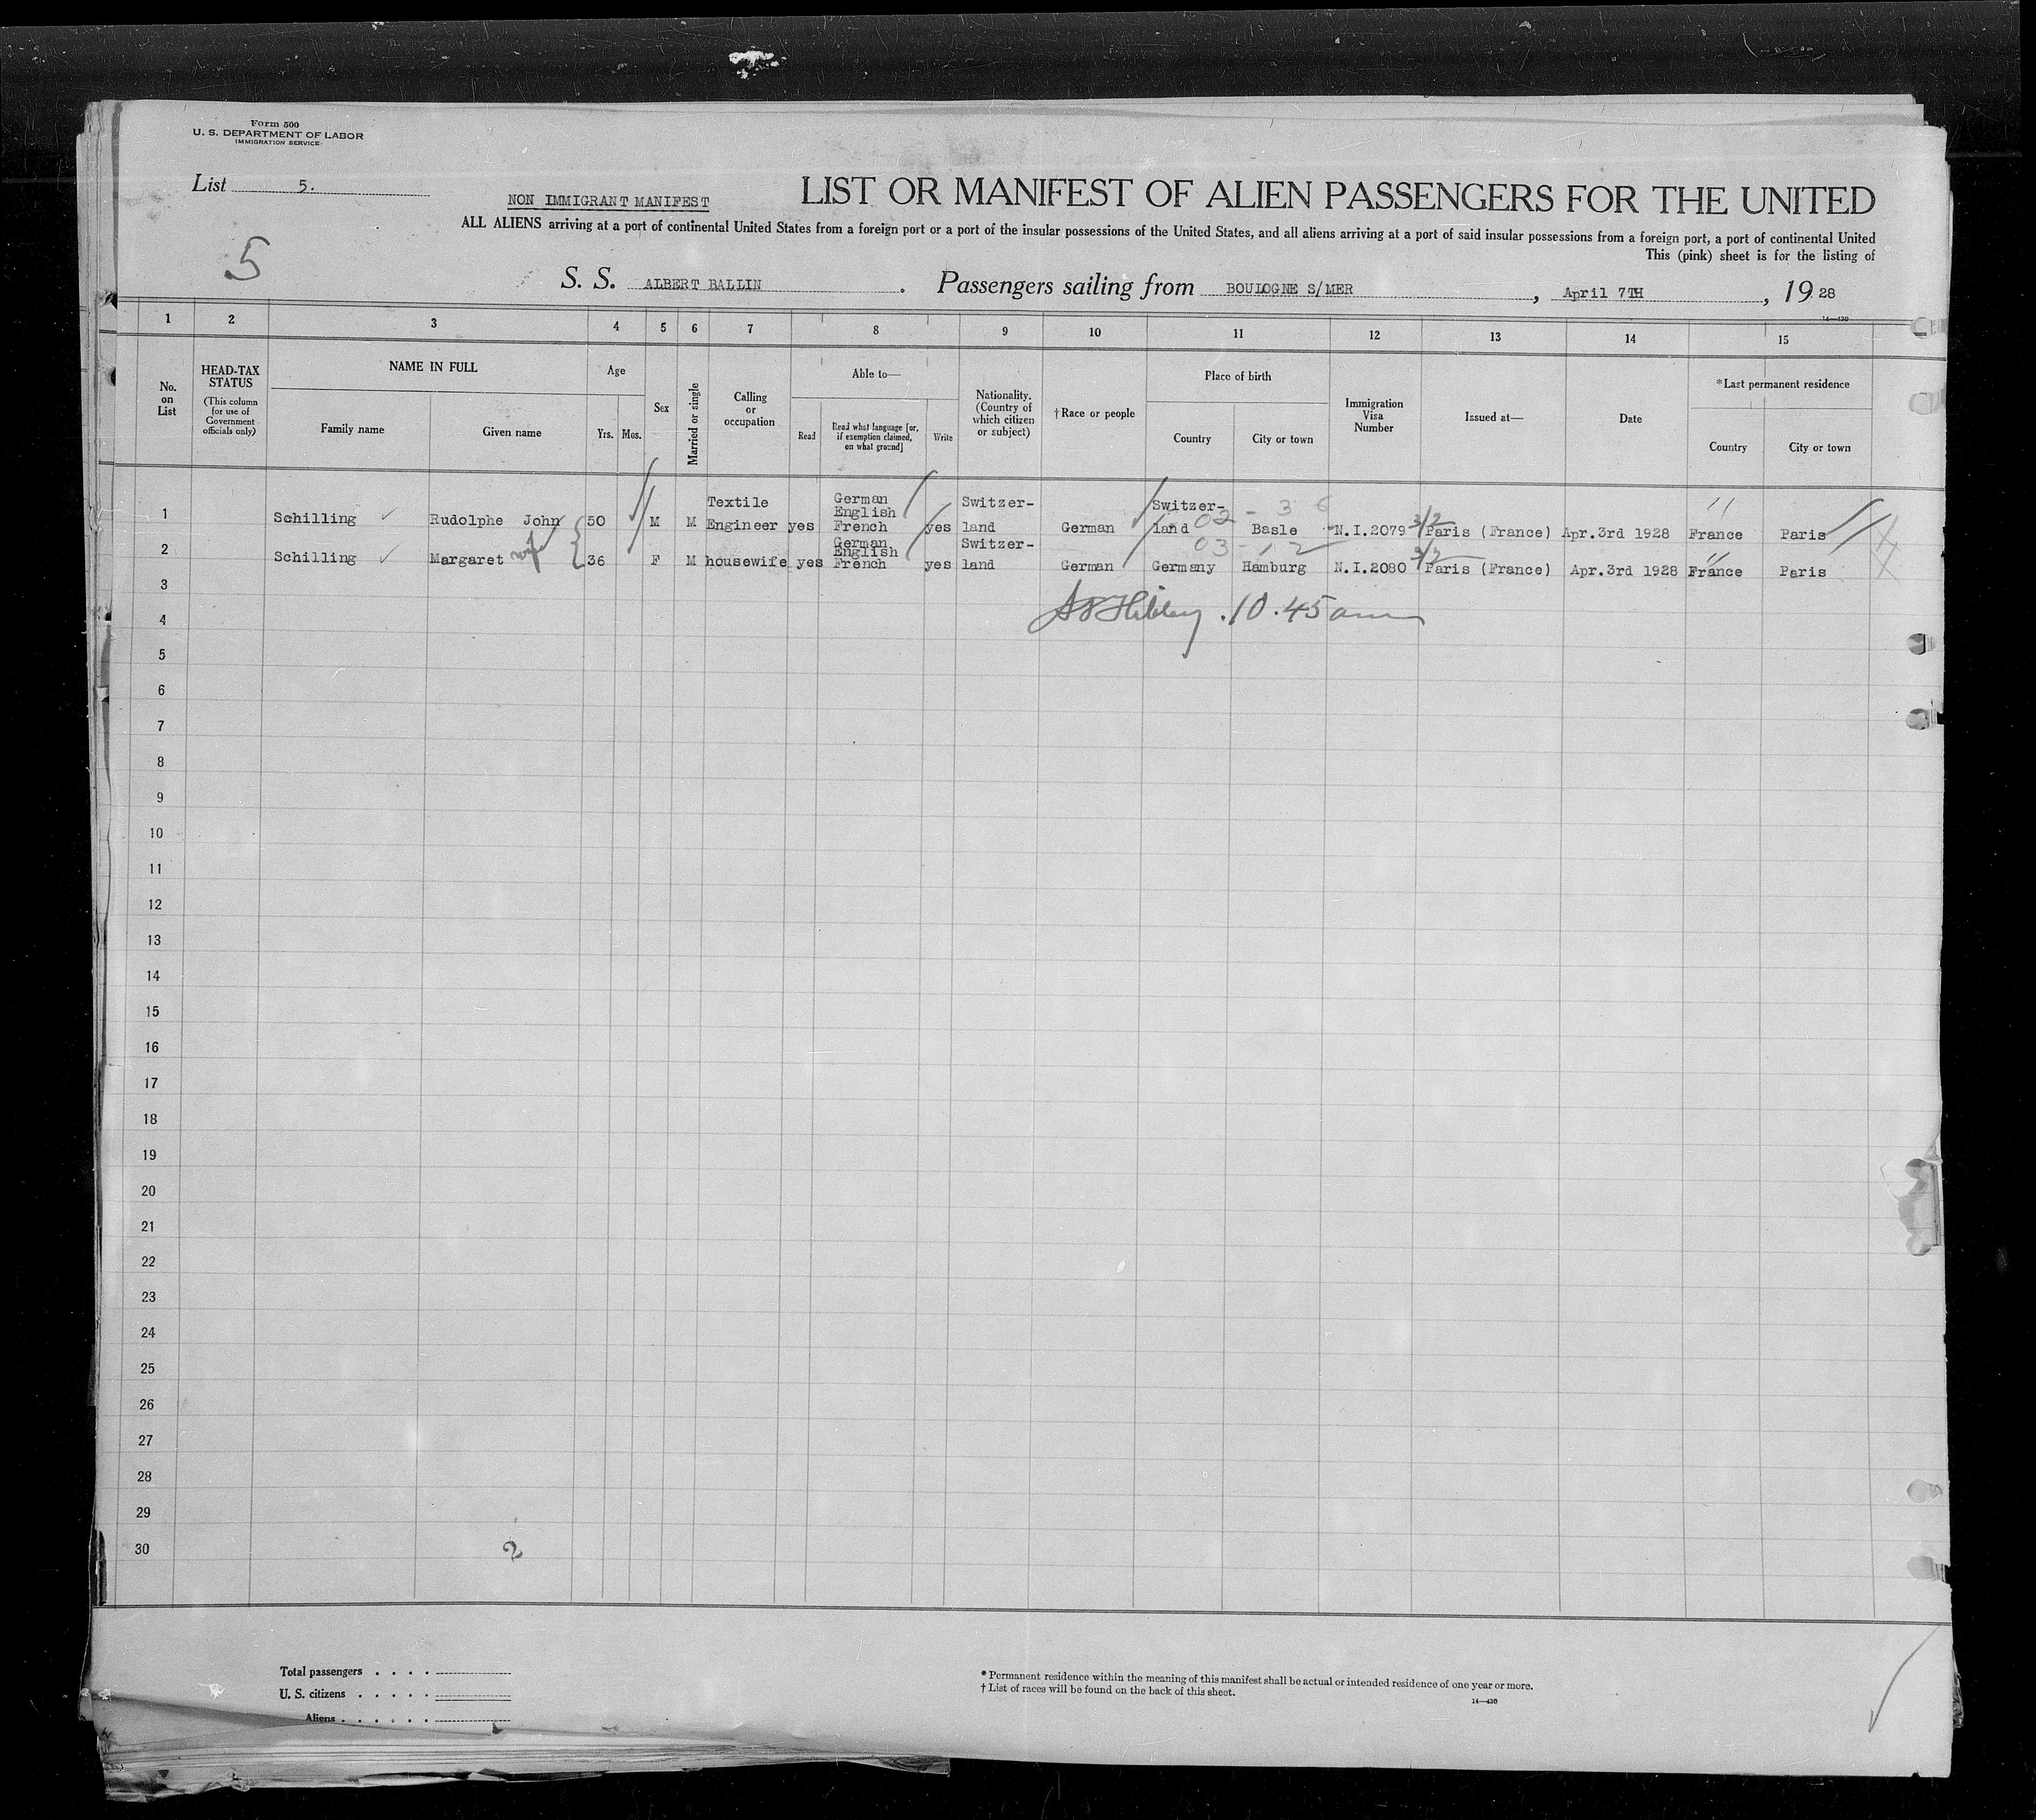 Form 500
U. S. DEPARTMENT OF LABOR
IMMIGRATION SERVICE
List 5.
NON IMMIGRANT MANIFEST
LIST OR MANIFEST OF ALIEN PASSENGERS FOR THE UNITED
ALL ALIENS arriving at a port of continental United States from a foreign port or a port of the insular possessions of the United States, and all aliens arriving at a port of said insular possessions from a foreign port, a port of continental United
This (pink) sheet is for the listing of
5
S. S. ALBERT BALLIN . Passengers sailing from BOULOGNE S/MER , April 7TH , 19 28
14—430
1 2 3 4 5 6 7 8 9 10 11 12 13 14 15
No. on List
HEAD-TAX STATUS
(This column for use of Government officials only)
NAME IN FULL
Family name
Given name
Age
Yrs. Mos.
Sex
Married or single
Calling or occupation
Able to—
Read
Read what language [or, if exemption claimed, on what ground]
Write
Nationality. (Country of which citizen or subject)
†Race or people
Place of birth
Country
City or town
Immigration Visa Number
Issued at—
Date
*Last permanent residence
Country
City or town
1 Schilling Rudolphe John 50 M M Textile Engineer yes German English French yes Switzer-land German Switzer-land 02 - 36 Basle N.I.2079 3/2 Paris (France) Apr.3rd 1928 France Paris
2 Schilling Margaret wife 36 F M housewife yes German English French yes Switzer-land German Germany 03 - 12 Hamburg N.I.2080 3/2 Paris (France) Apr.3rd 1928 France Paris
3
10.45 am
4
5
6
7
8
9
10
11
12
13
14
15
16
17
18
19
20
21
22
23
24
25
26
27
28
29
30
2
Total passengers . . . .
U. S. citizens . . . . .
Aliens . . . . . .
* Permanent residence within the meaning of this manifest shall be actual or intended residence of one year or more.
† List of races will be found on the back of this sheet.
14—430